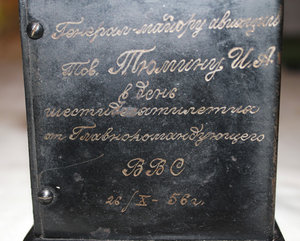 Генерал-майору авиации
Тов. Тюмину И.А.
в день
шестидесятилетия
от Главнокомандующего
ВВС
26/X-56г.